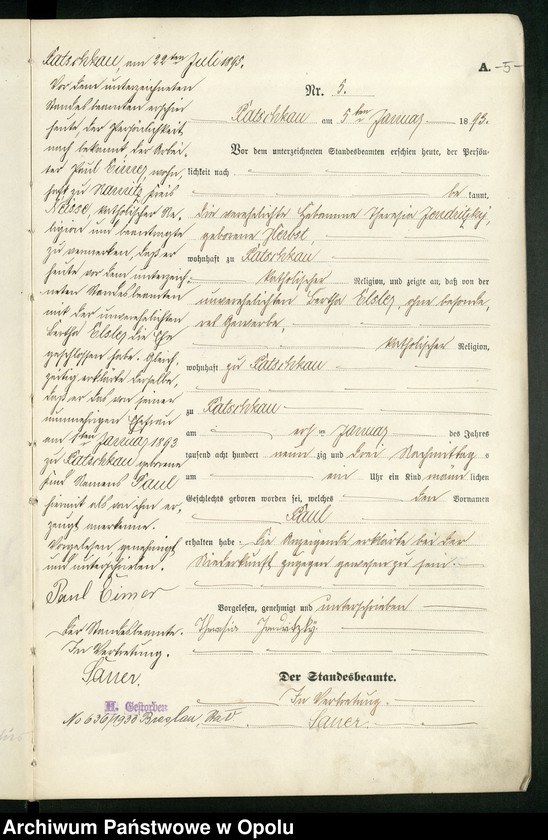 Patschkau, am 22ten Juli 1895.
Vor dem unterzeichneten
Standesbeamten erschien
heute, der Persönlichkeit
nach bekannt, der Arbei-
ter Paul Eimer, wohn-
haft zu Kreis
Neisse, katholischer Re-
ligion und beantragte
zu vermerken, daß er
heute vor dem unterzeich-
neten Standesbeamten
mit der unverehelichten
Bertha Elsler die Ehe
geschlossen habe. Gleich-
zeitig erklärte derselbe,
daß er das von seiner
nunmehrigen Ehefrau
am 1ten Januar 1893
zu Patschkau geborene
Kind Namens Paul
hiermit als von ihm er-
zeugt anerkenne.
Vorgelesen, genehmigt
und unterschrieben.
Paul Eimer
Der Standesbeamte.
In Vertretung.
Sauer.
H. Gestorben
No 636/1933 Breslau, Sta V.
A. -5-
Nr. 3.
Patschkau am 5ten Januar 1893.
Vor dem unterzeichneten Standesbeamten erschien heute, der Persön-
lichkeit nach
be kannt,
die verehelichte Hebamme Theresia Jendritzky,
geborene Herbst,
wohnhaft zu Patschkau
katholischer Religion, und zeigte an, daß von der
unverehelichten Bertha Elsler, ohne besonde,
res Gewerbe,
katholischer Religion,
wohnhaft zu Patschkau
zu Patschkau
am ersten Januar des Jahres
tausend acht hundert neun zig und drei Nachmittags
um ein Uhr ein Kind männlichen
Geschlechts geboren worden sei, welches den Vornamen
Paul
erhalten habe. Die Anzeigende erklärte bei der
Niederkunft zugegen gewesen zu sein.
Vorgelesen, genehmigt und unterschrieben
Theresia Jendritzky.
Der Standesbeamte.
In Vertretung.
Sauer.
Archiwum Państwowe w Opolu